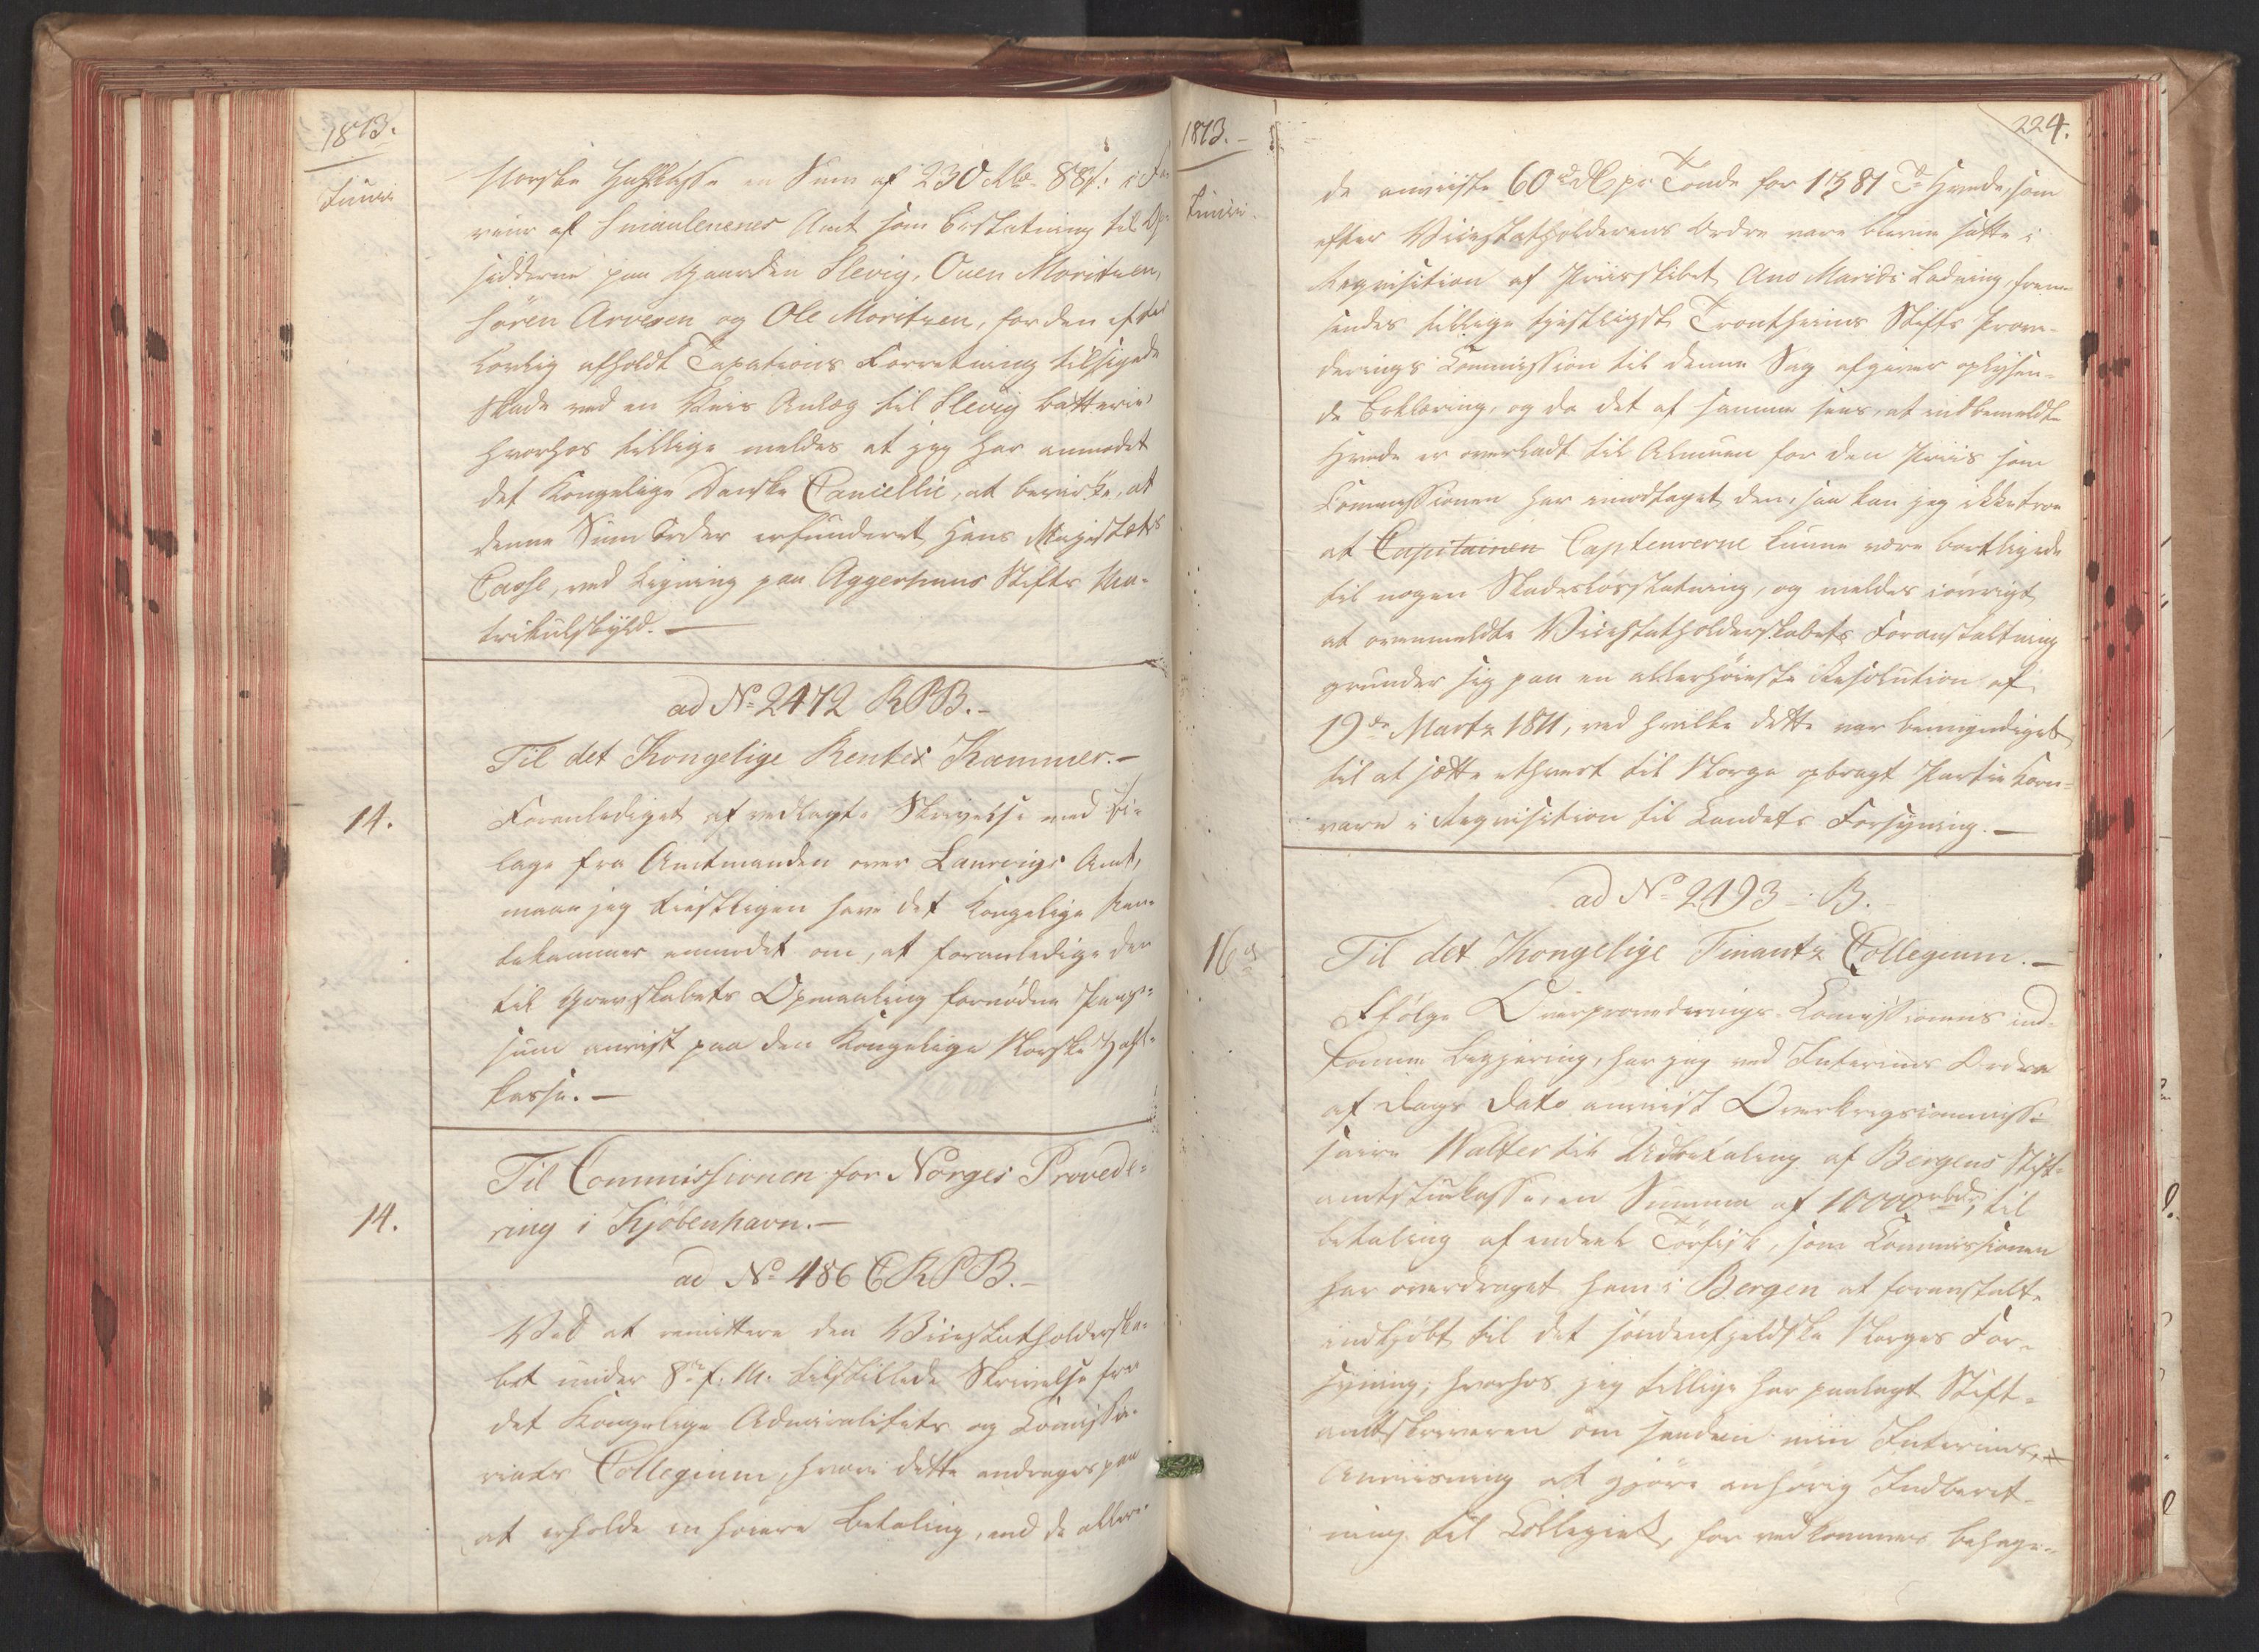 1813.
Junii
Norske Hovedkasse en Sum af 230 Rbd. 88 s:
af Smaalenenes Amt som Erstatning til Op-
sidderne paa Gaarden Slevig, Ouen Moritzen,
Sören Arvesen og Ole Moritzen, for den efter
lovlig afholdt Taxations Forretning tilføiede
Skade ved en Veis Anlæg til Slevig Batterie
hvorhos tillige meldes at jeg har anmodet
det Kongelige Danske Cancellie, at bevirke, at
denne Sum bliver refunderet Hans Majestæts
Casse, ved Ligning paa Aggershuus Stifts Ma-
trikulskyld. —
ad No 2472 RPB.-
Til det Kongelige Rente Kammer.-
14.
Foranlediget af vedlagte Skrivelse med Bi-
lage fra Amtmanden over Laurvigs Amt,
maae jeg tienstligen have det Kongelige Ren-
tekammer anmodet om, at foranledige den
til Grevskabets Opmaaling fornødne Penge-
sum anvist paa den Kongelige Norske Hoved-
kasse. —
14.
Til Commissionen for Norges Provede-
ring i Kjöbenhavn.—
ad No 486 CRPB.-
Ved at remittere den Viceskatholderska-
bet under 8de f. M. tilstillede Skrivelse fra
det Kongelige Admiralitets og Commissa-
riats Collegium, hvori dette andrages paa
at erholde en høiere Betaling, end de alle-
1813.-
Junii.
224.
de anviiste 60 rd pr. Tønde for 1381 Tr Hvede, som
efter Vicestatholderens Ordre vare blevne satte i
Requisition af Priisskibet Ladning, frem-
sendes tillige tjenstligst Trontheims Stifts Prove-
derings Commission til denne Sag afgivne oplysen-
de Erklæring, og da det af samme sees, at indbemeldte
Hvede er overladt til Almuen for den Priis som
Commissionen har modtaget den, saa kan jeg ikke troe
at Capitainen Captenrerne kunne være berettigede
til nogen Skadesløsstatning, og meldes iøvrigt
at ovenmeldte Vicestatholderskabets Foranstaltning
grunder sig paa en allerhøieste Resolution af
19de Martz 1811, ved hvilke dette var bemyndiget
til at sætte ethvert til Norge opbragt Partie Korn-
vare i Requisition til Landets Forsyning. —
ad No 2493 - B.-
16de
Til det Kongelige Finantz Collegium.—
Ifølge Overprovederings-Commissionens ind-
komne Begjæring, har jeg ved Interims Ordre
af Dags Dato anviist Overkrigscommis-
saire Walter til Udbetaling af Bergens Stift-
amtstuekasse, en Summa af 10000 rbd., til
Betaling af endeel Tørfisk, som Commissionen
har overdraget ham i Bergen at foranstalte
indkjøbt til det søndenfjeldske Norges For-
syning; hvorhos jeg tillige har paalagt Stift-
amtskriveren om saadan min Interims
Anviisning at gjøre anhørig Indberet-
ning til Collegiet, for vedkommes behage-